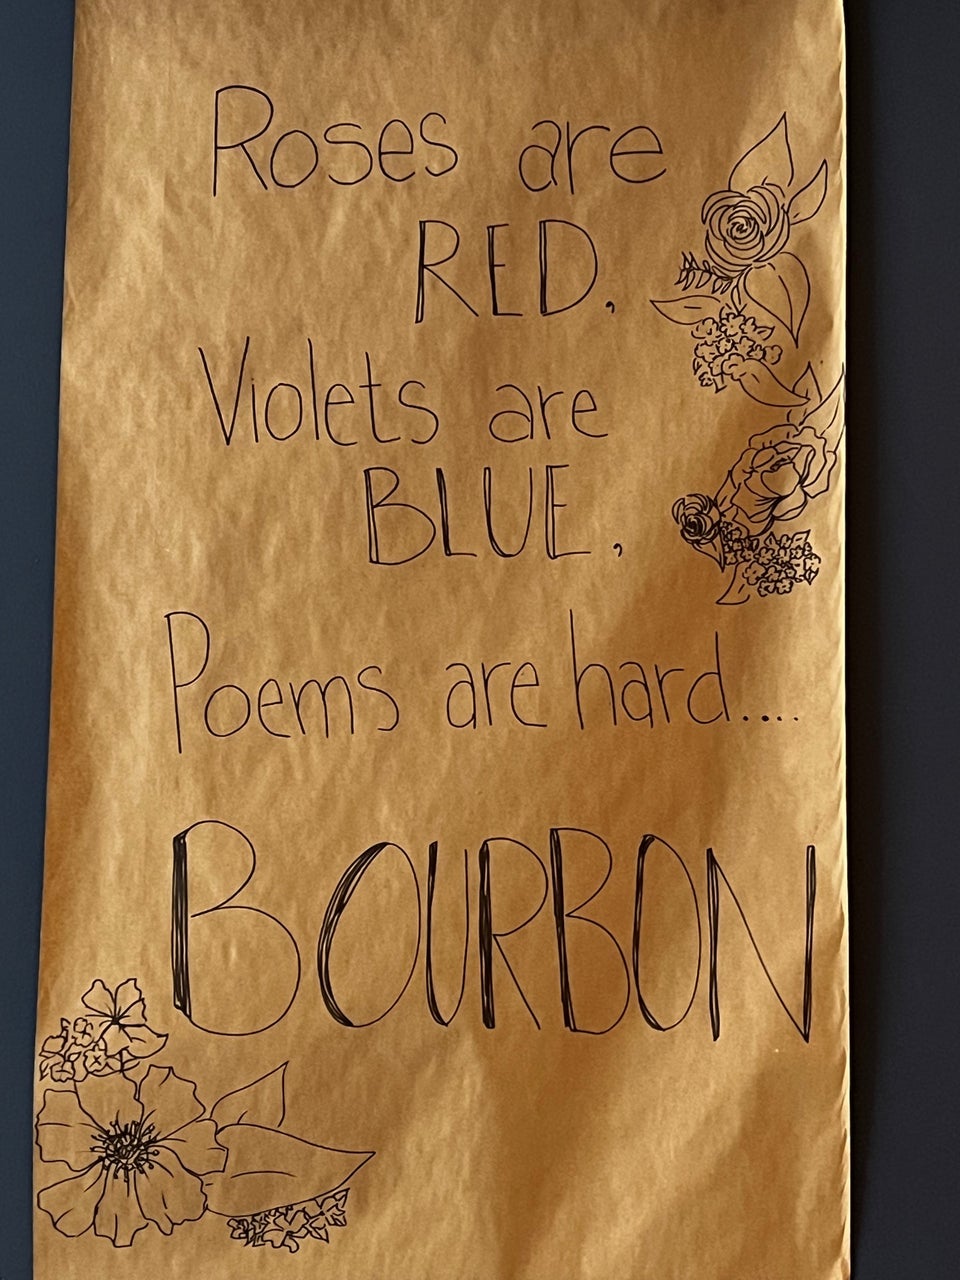 Roses are
RED,
Violets are
BLUE,
Poems are hard....
BOURBON